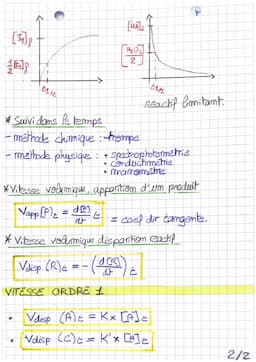 [I₂]f
½[I₂]f
t1/2
P
[H₂O₂]₀
2
t1/2
réactif limitant.
* Suivi dans le temps
- méthode chimique : trempe
- méthode physique : • spectrophotométrie
• conductimétrie
• manométrie
* Vitesse volumique, apparition d'un produit
Vapp(P)t = d[P]/dt t = coef dir tangente.
* Vitesse volumique disparition réactif
Vdisp (R)t = - (d[R]/dt)t
VITESSE ORDRE 1
• Vdisp (A)t = K x [A]t
• Vdisp (C)t = K' x [C]t
2/2